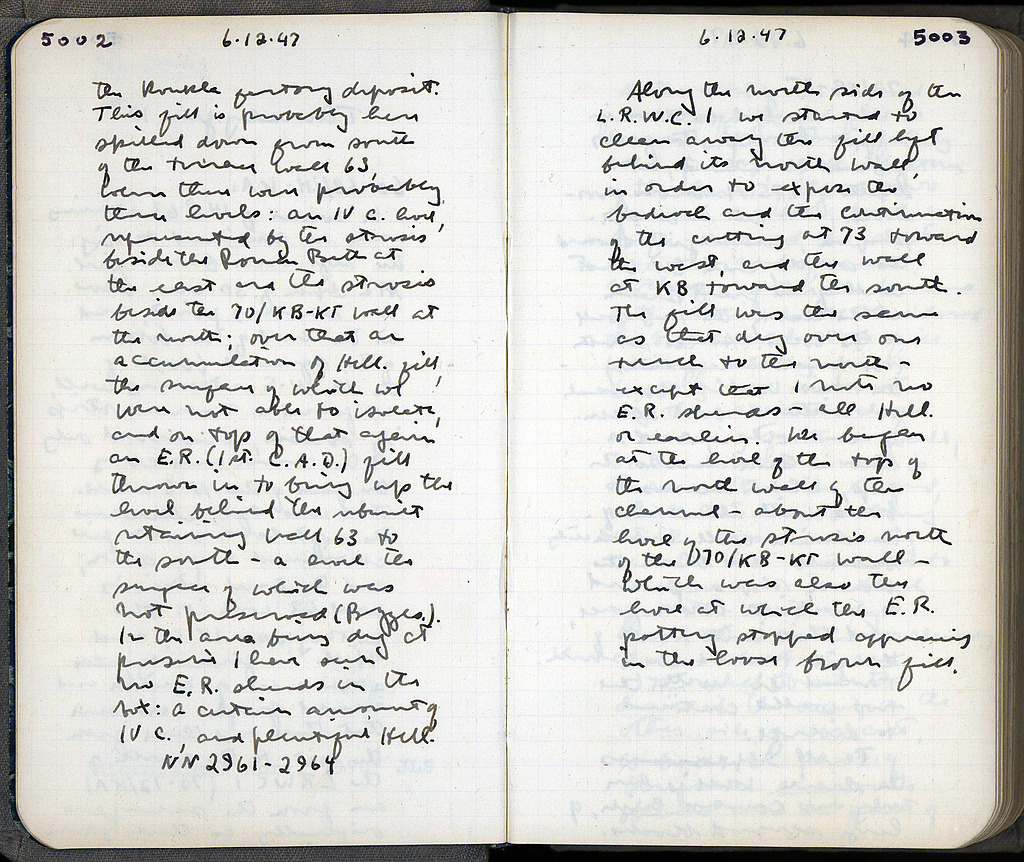 5002 6·12·47
the Koukla factory deposit.
This fill is probably here
spilled down from south
of the terrace wall 63,
where there were probably
three levels: an IV c. level,
represented by the strosis
beside the Roman Bath at
the east and the strosis
beside the 70/KB-KΓ wall at
the north; over that an
accumulation of Hell. fill,
the surface of which we
were not able to isolate,
and on top of that again
an E.R. (1st. C. A.D.) fill
thrown in to bring up the
level behind the rebuilt
retaining wall 63 to
the south - a level the
surface of which was
not preserved (Byzes.).
In the area being dug at
present I have seen
no E.R. sherds in the
lot: a certain amount of
IV c., and plentiful Hell.
NN 2961-2964
6·12·47 5003
Along the north side of the
L.R.W.C. 1 we started to
clean away the fill left
behind its north wall,
in order to expose the
bedrock and the continuation
of the cutting at 73 toward
the west, and the wall
at KB toward the south.
The fill was the same
as that dug over our
trench to the north -
except that I note no
E.R. sherds - all Hell.
or earlier. We began
at the level of the top of
the north wall of the
channel - about the
level of the strosis north
of the 70/KB-KΓ wall -
which was also the
level at which the E.R.
pottery stopped appearing
in the loose brown fill.